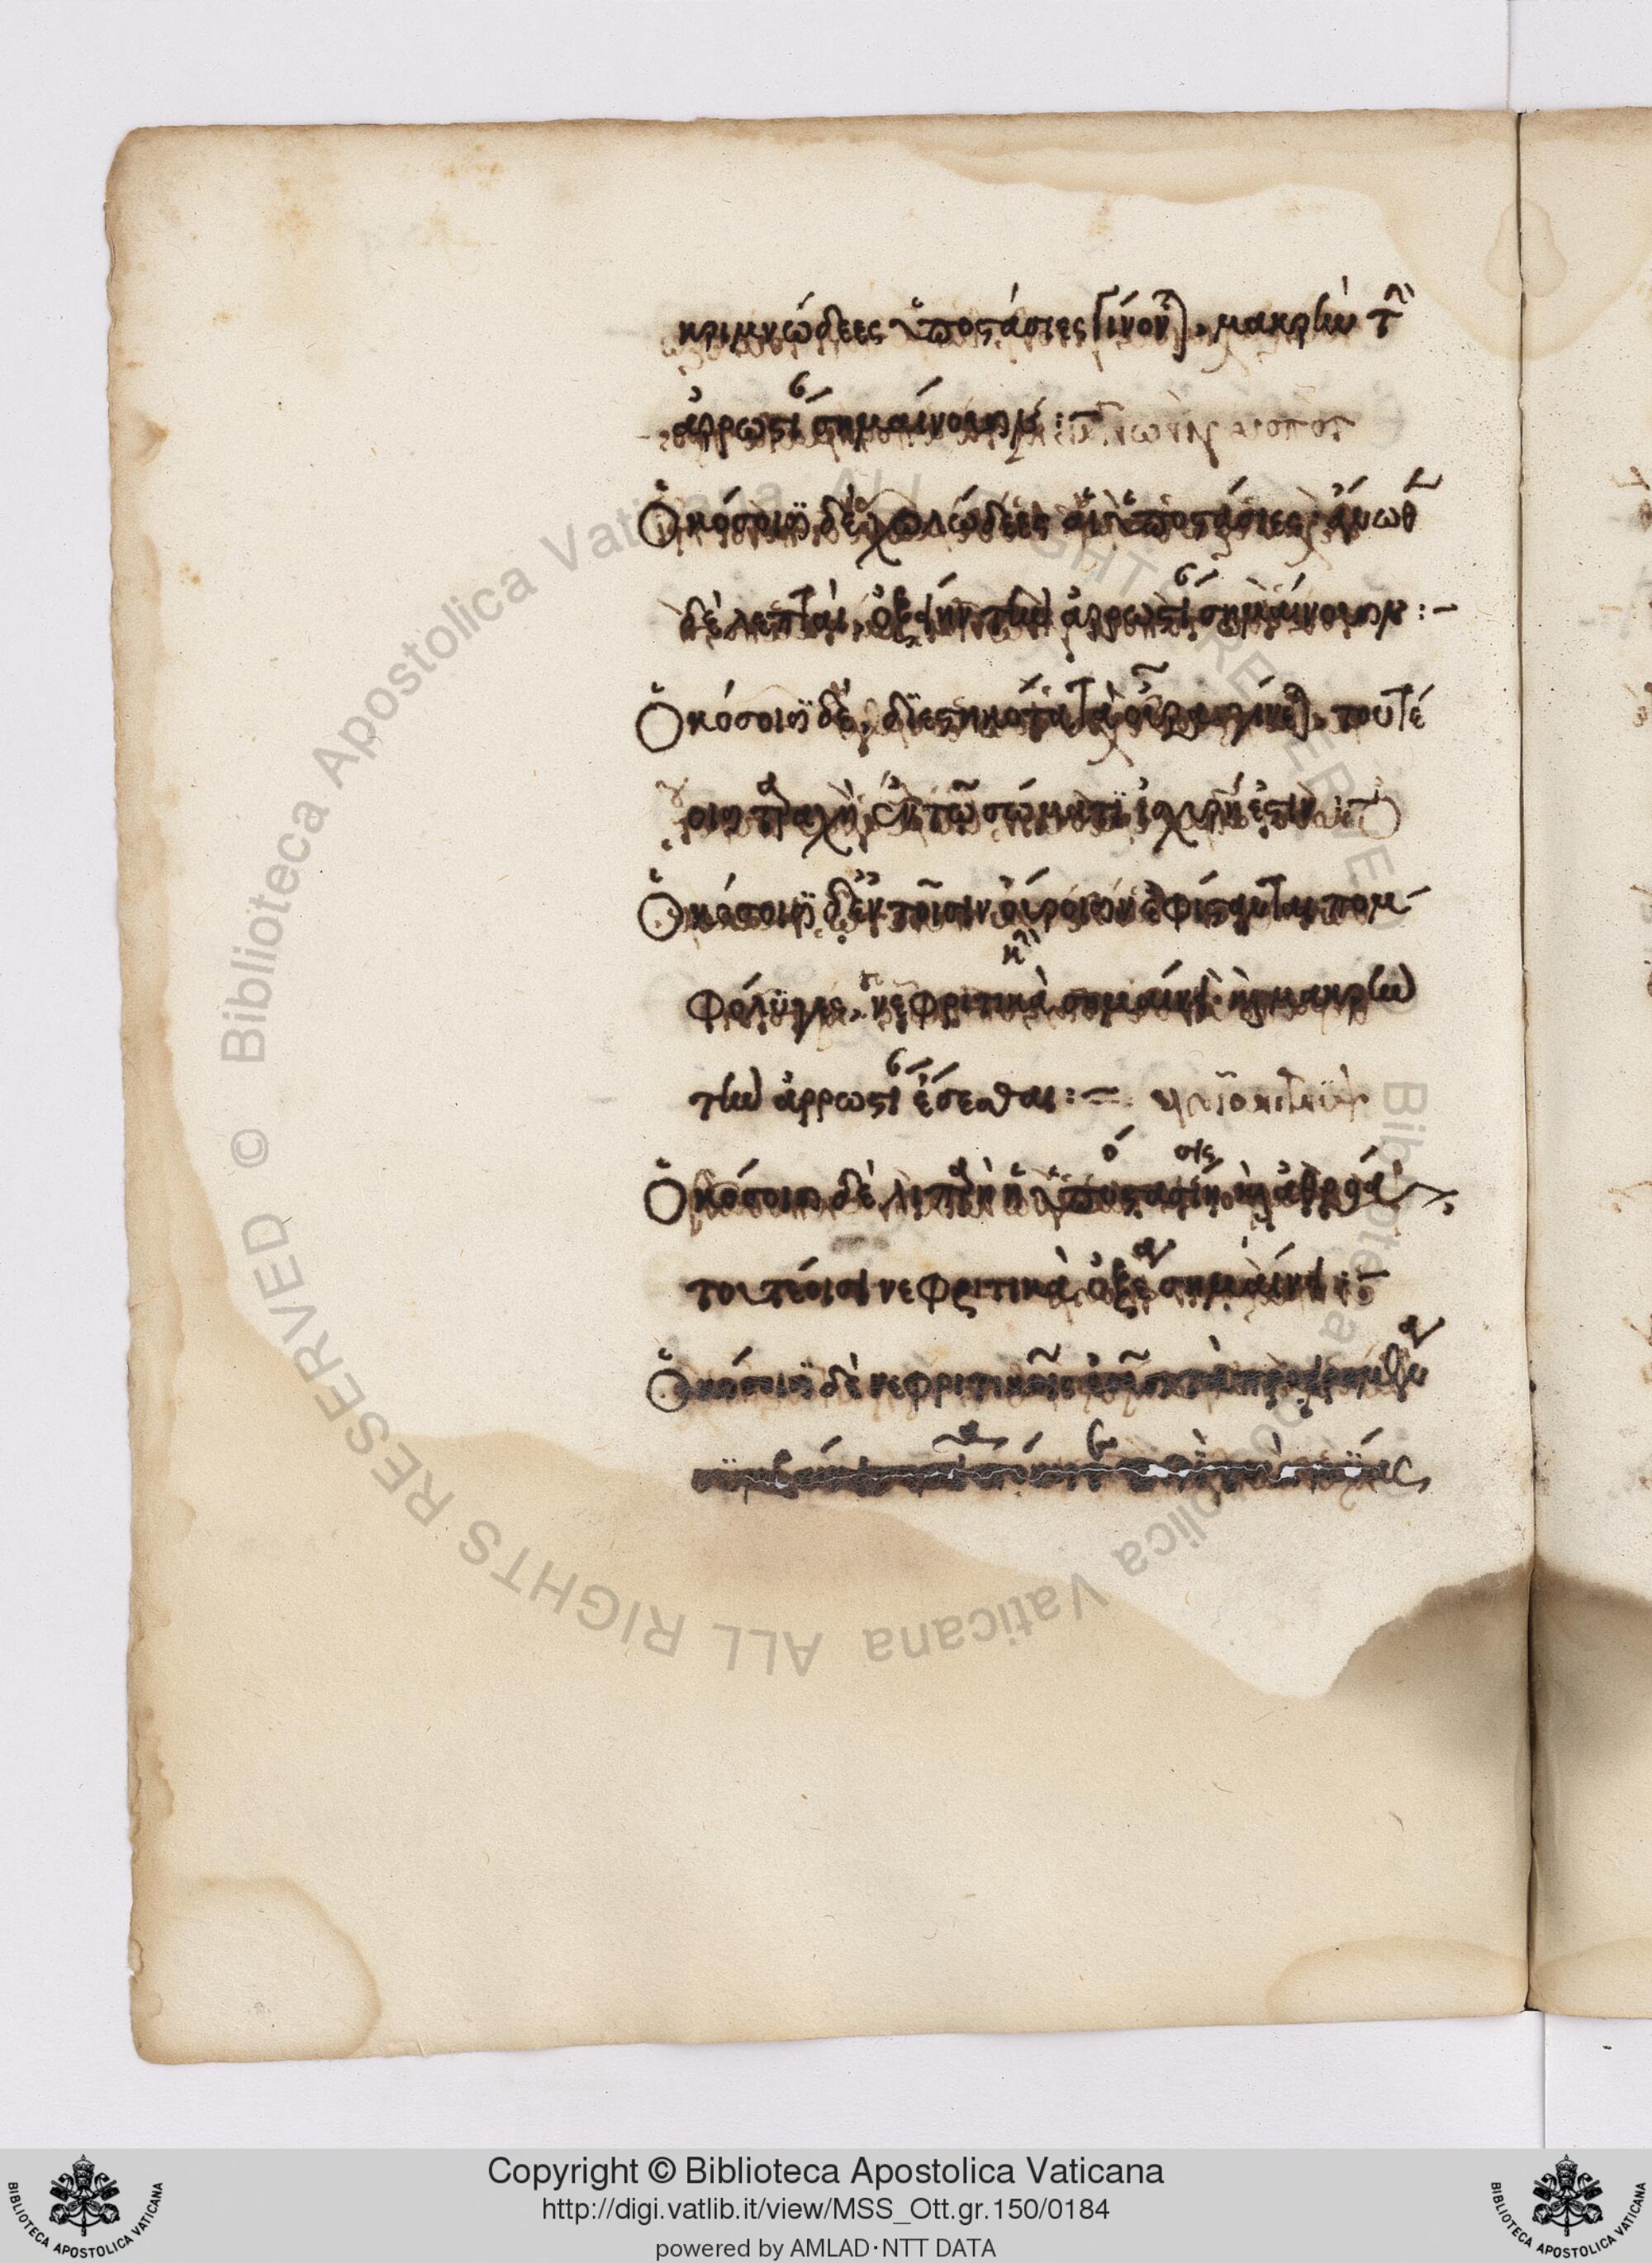 κριμνώδεες ὑποστάσιες γίνον], μακρὴν τὴν
ἀρρωστί σημαίνουσιν :-
Ὁκόσοισι δὲ χολώδεες αἱ ὑποστάσιες ἄνωθ
δὲ λεπταὶ, ὀξείην τὴν ἀρρωστί σημαίνουσιν :-
Ὁκόσοισι δὲ, διεστηκότα τὰ οὖρα γίνε], τουτέ
οισι ταραχὴ ἐν τῶ σώματι ἰσχυρή ἐστιν
Ὁκόσοισι δὲ ἐν τοῖσιν οὔροισιν ἐφίστανται πομ-
φόλυγες, νεφριτικὰ σημαίνει· καὶ μακρὴν
τὴν ἀρρωστί ἔσεσθαι :=
Ὁκόσοισι δὲ λιπαρὴ ἡ ὑπόστασις καὶ ἀθρόα
τουτέοισι νεφριτικὰ ὀξέα σημαίνει :-
Ὁκόσοισι δὲ νεφριτικοῖσι ἐοῦσι τὰ προειρημένα
Copyright © Biblioteca Apostolica Vaticana
http://digi.vatlib.it/view/MSS_Ott.gr.150/0184
powered by AMLAD·NTT DATA
© Biblioteca Apostolica Vaticana ALL RIGHTS RESERVED
BIBLIOTECA APOSTOLICA VATICANA
BIBLIOTECA APOSTOLICA VATICANA